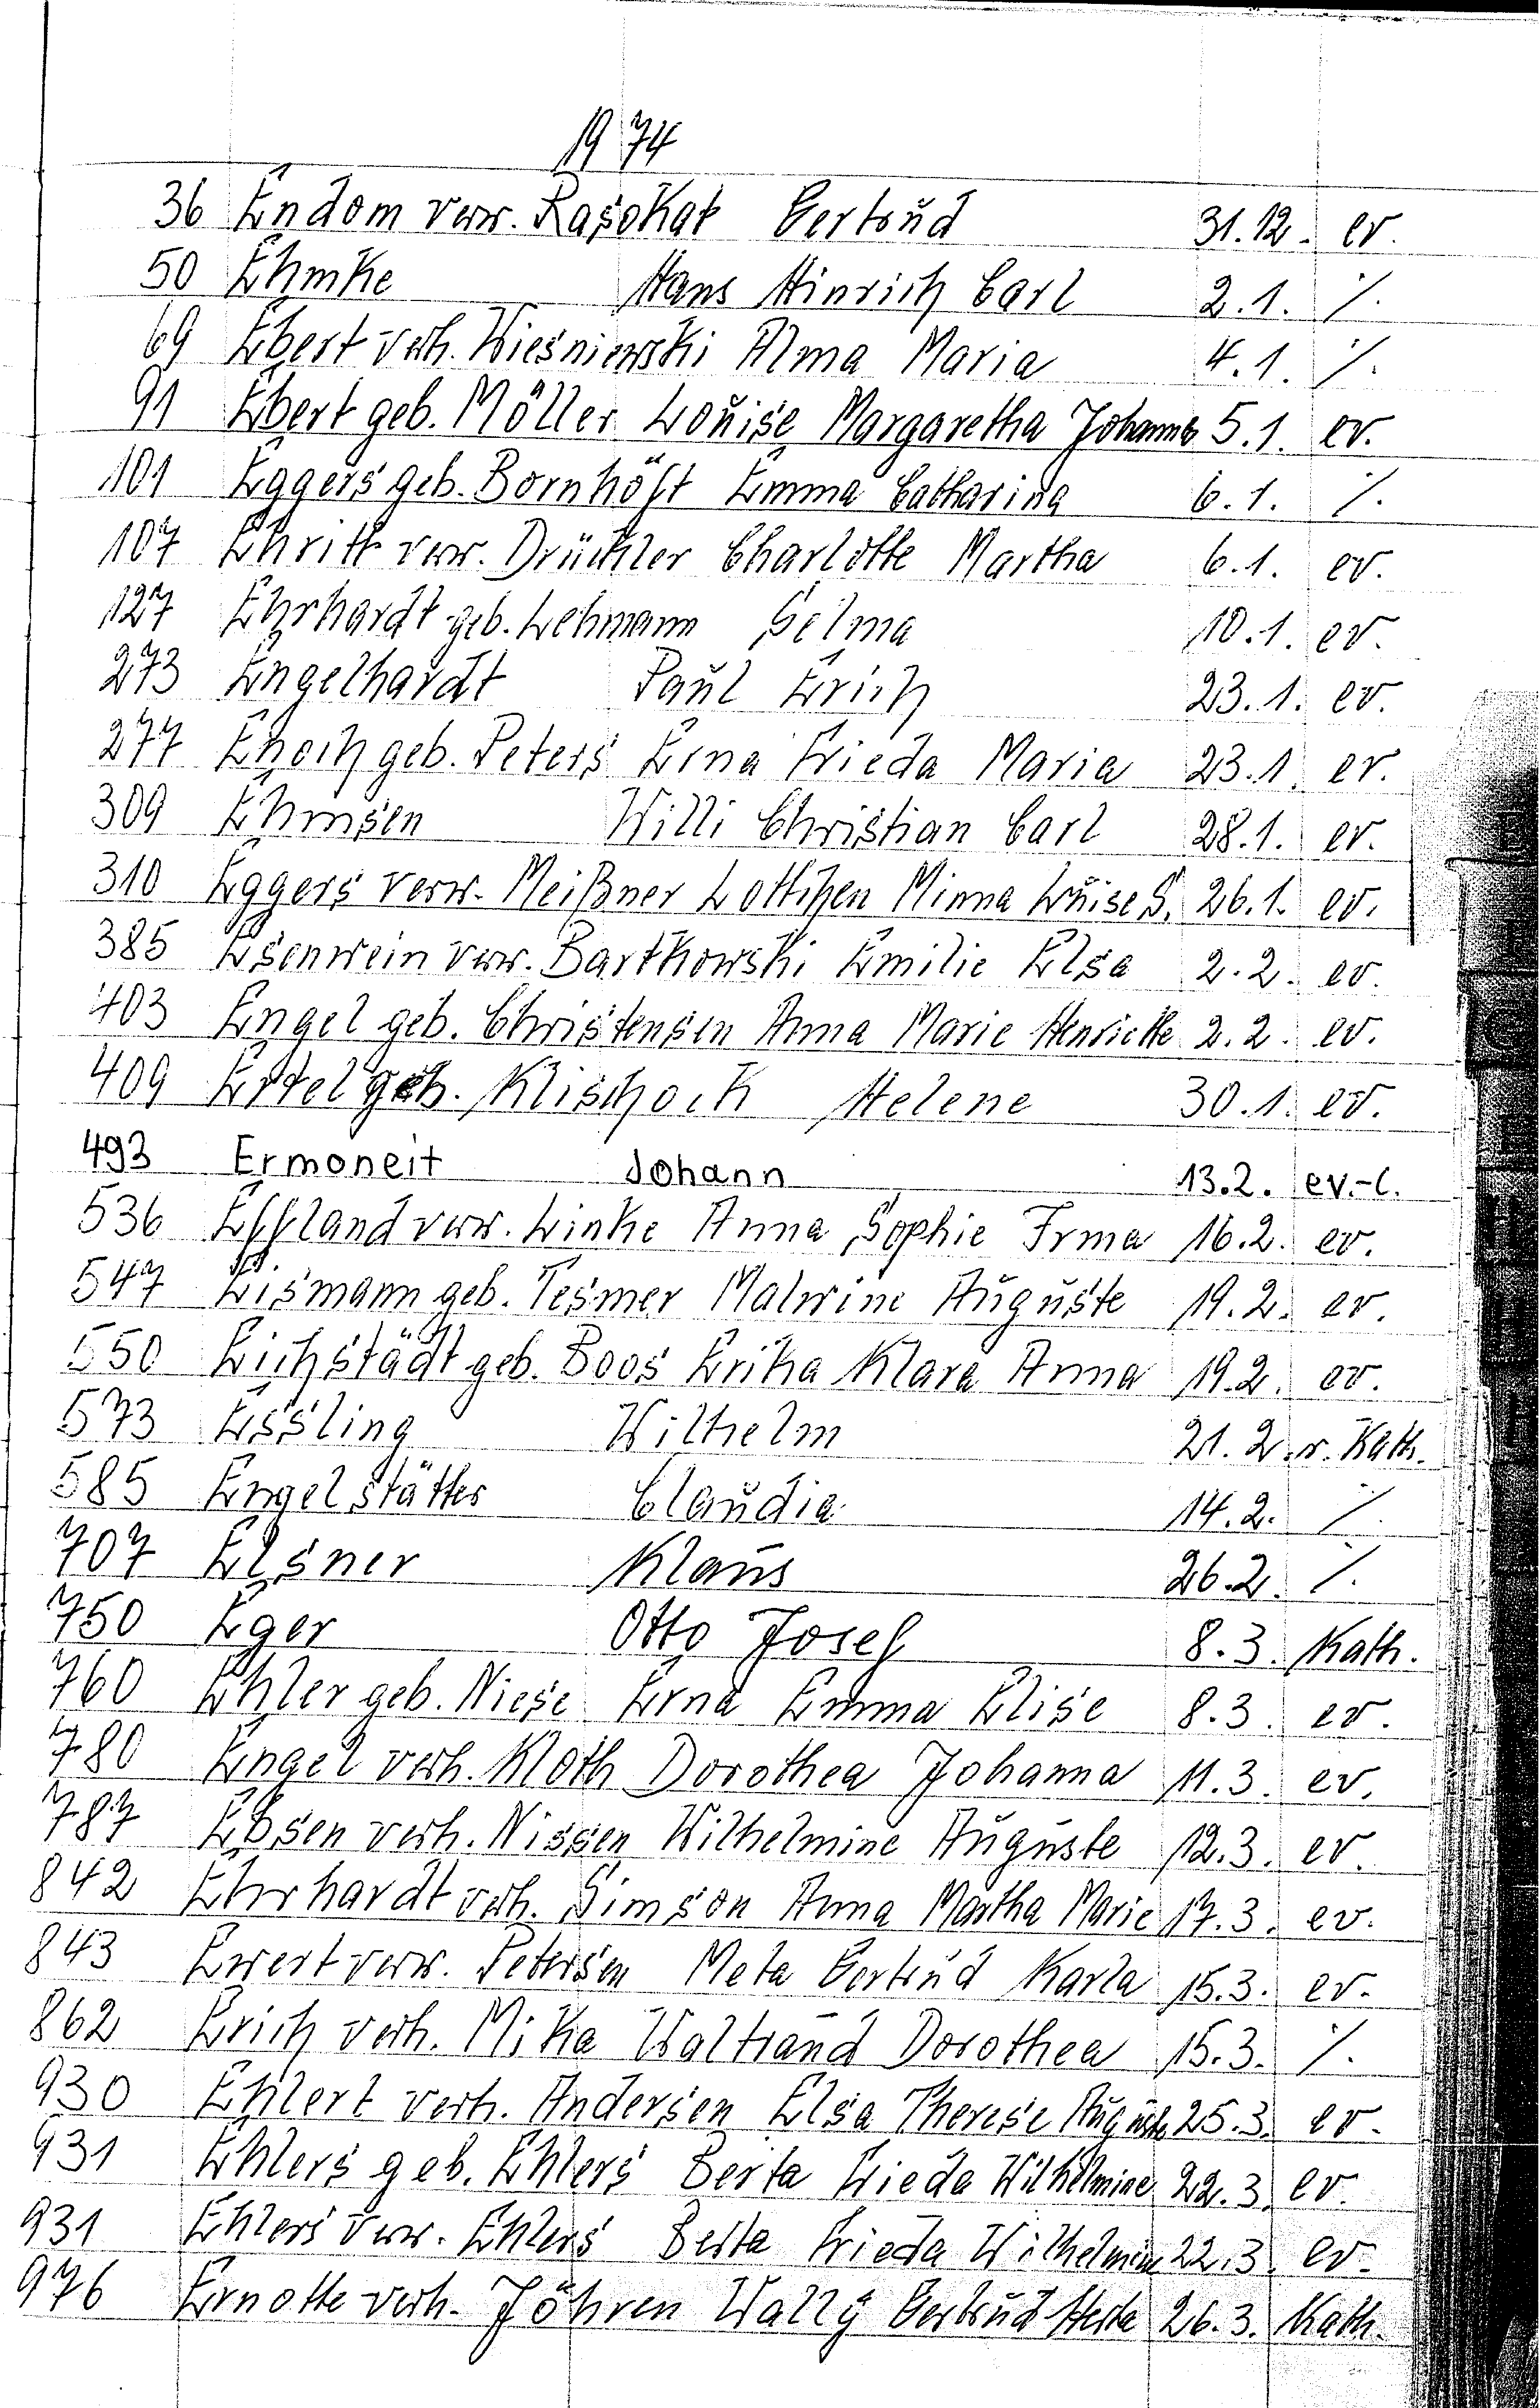 1974
36 Endom verw. Rasokat Gertrud 31.12. ev.
50 Ehmke Hans Hinrich Carl 2.1. %
69 Ebert verh. Wiesniewski Alma Maria 4.1. %
91 Ebert geb. Möller Louise Margaretha Johanna 5.1. ev.
101 Eggers geb. Bornhöft Emma Catharina 6.1. %
107 Ehritt verw. Drückler Charlotte Martha 6.1. ev.
127 Ehrhardt geb. Lehmann Selma 10.1. ev.
273 Engelhardt Paul Erich 23.1. ev.
277 Enoch geb. Peters Erna Frieda Maria 23.1. ev.
309 Ehmsen Willi Christian Carl 28.1. ev.
310 Eggers verw. Meißner Lottchen Minna Luise S. 26.1. ev.
385 Esenwein verw. Bartkowski Emilie Elsa 2.2. ev.
403 Engel geb. Christensen Anna Marie Henriette 2.2. ev.
409 Ertel geb. Klischock Helene 30.1. ev.
493 Ermoneit Johann 13.2. ev.-l.
536 Effland verw. Linke Anna Sophie Irma 16.2. ev.
547 Eismann geb. Tesmer Malwine Auguste 19.2. ev.
550 Eichstädt geb. Boos Erika Klara Anna 19.2. ev.
573 Essling Wilhelm 21.2. r. Kath.
585 Engelstätter Claudia 14.2. %
707 Elsner Klaus 26.2. %
750 Eger Otto Josef 8.3. Kath.
760 Ehler geb. Niese Erna Emma Elise 8.3. ev.
780 Engel verh. Kloth Dorothea Johanna 11.3. ev.
787 Ebsen verh. Nissen Wilhelmine Auguste 12.3. ev.
842 Ehrhardt verh. Simson Anna Martha Marie 17.3. ev.
843 Ewert verw. Petersen Meta Gertrud Karla 15.3. ev.
862 Erich verh. Mika Waltraud Dorothea 15.3. %
930 Ehlert verh. Andersen Elsa Therese Auguste 25.3. ev.
931 Ehlers geb. Ehlers Berta Frieda Wilhelmine 22.3. ev.
931 Ehlers verw. Ehlers Berta Frieda Wilhelmine 22.3. ev.
976 Ernotte verh. Jöhren Wally Gertrud Herta 26.3. Kath.